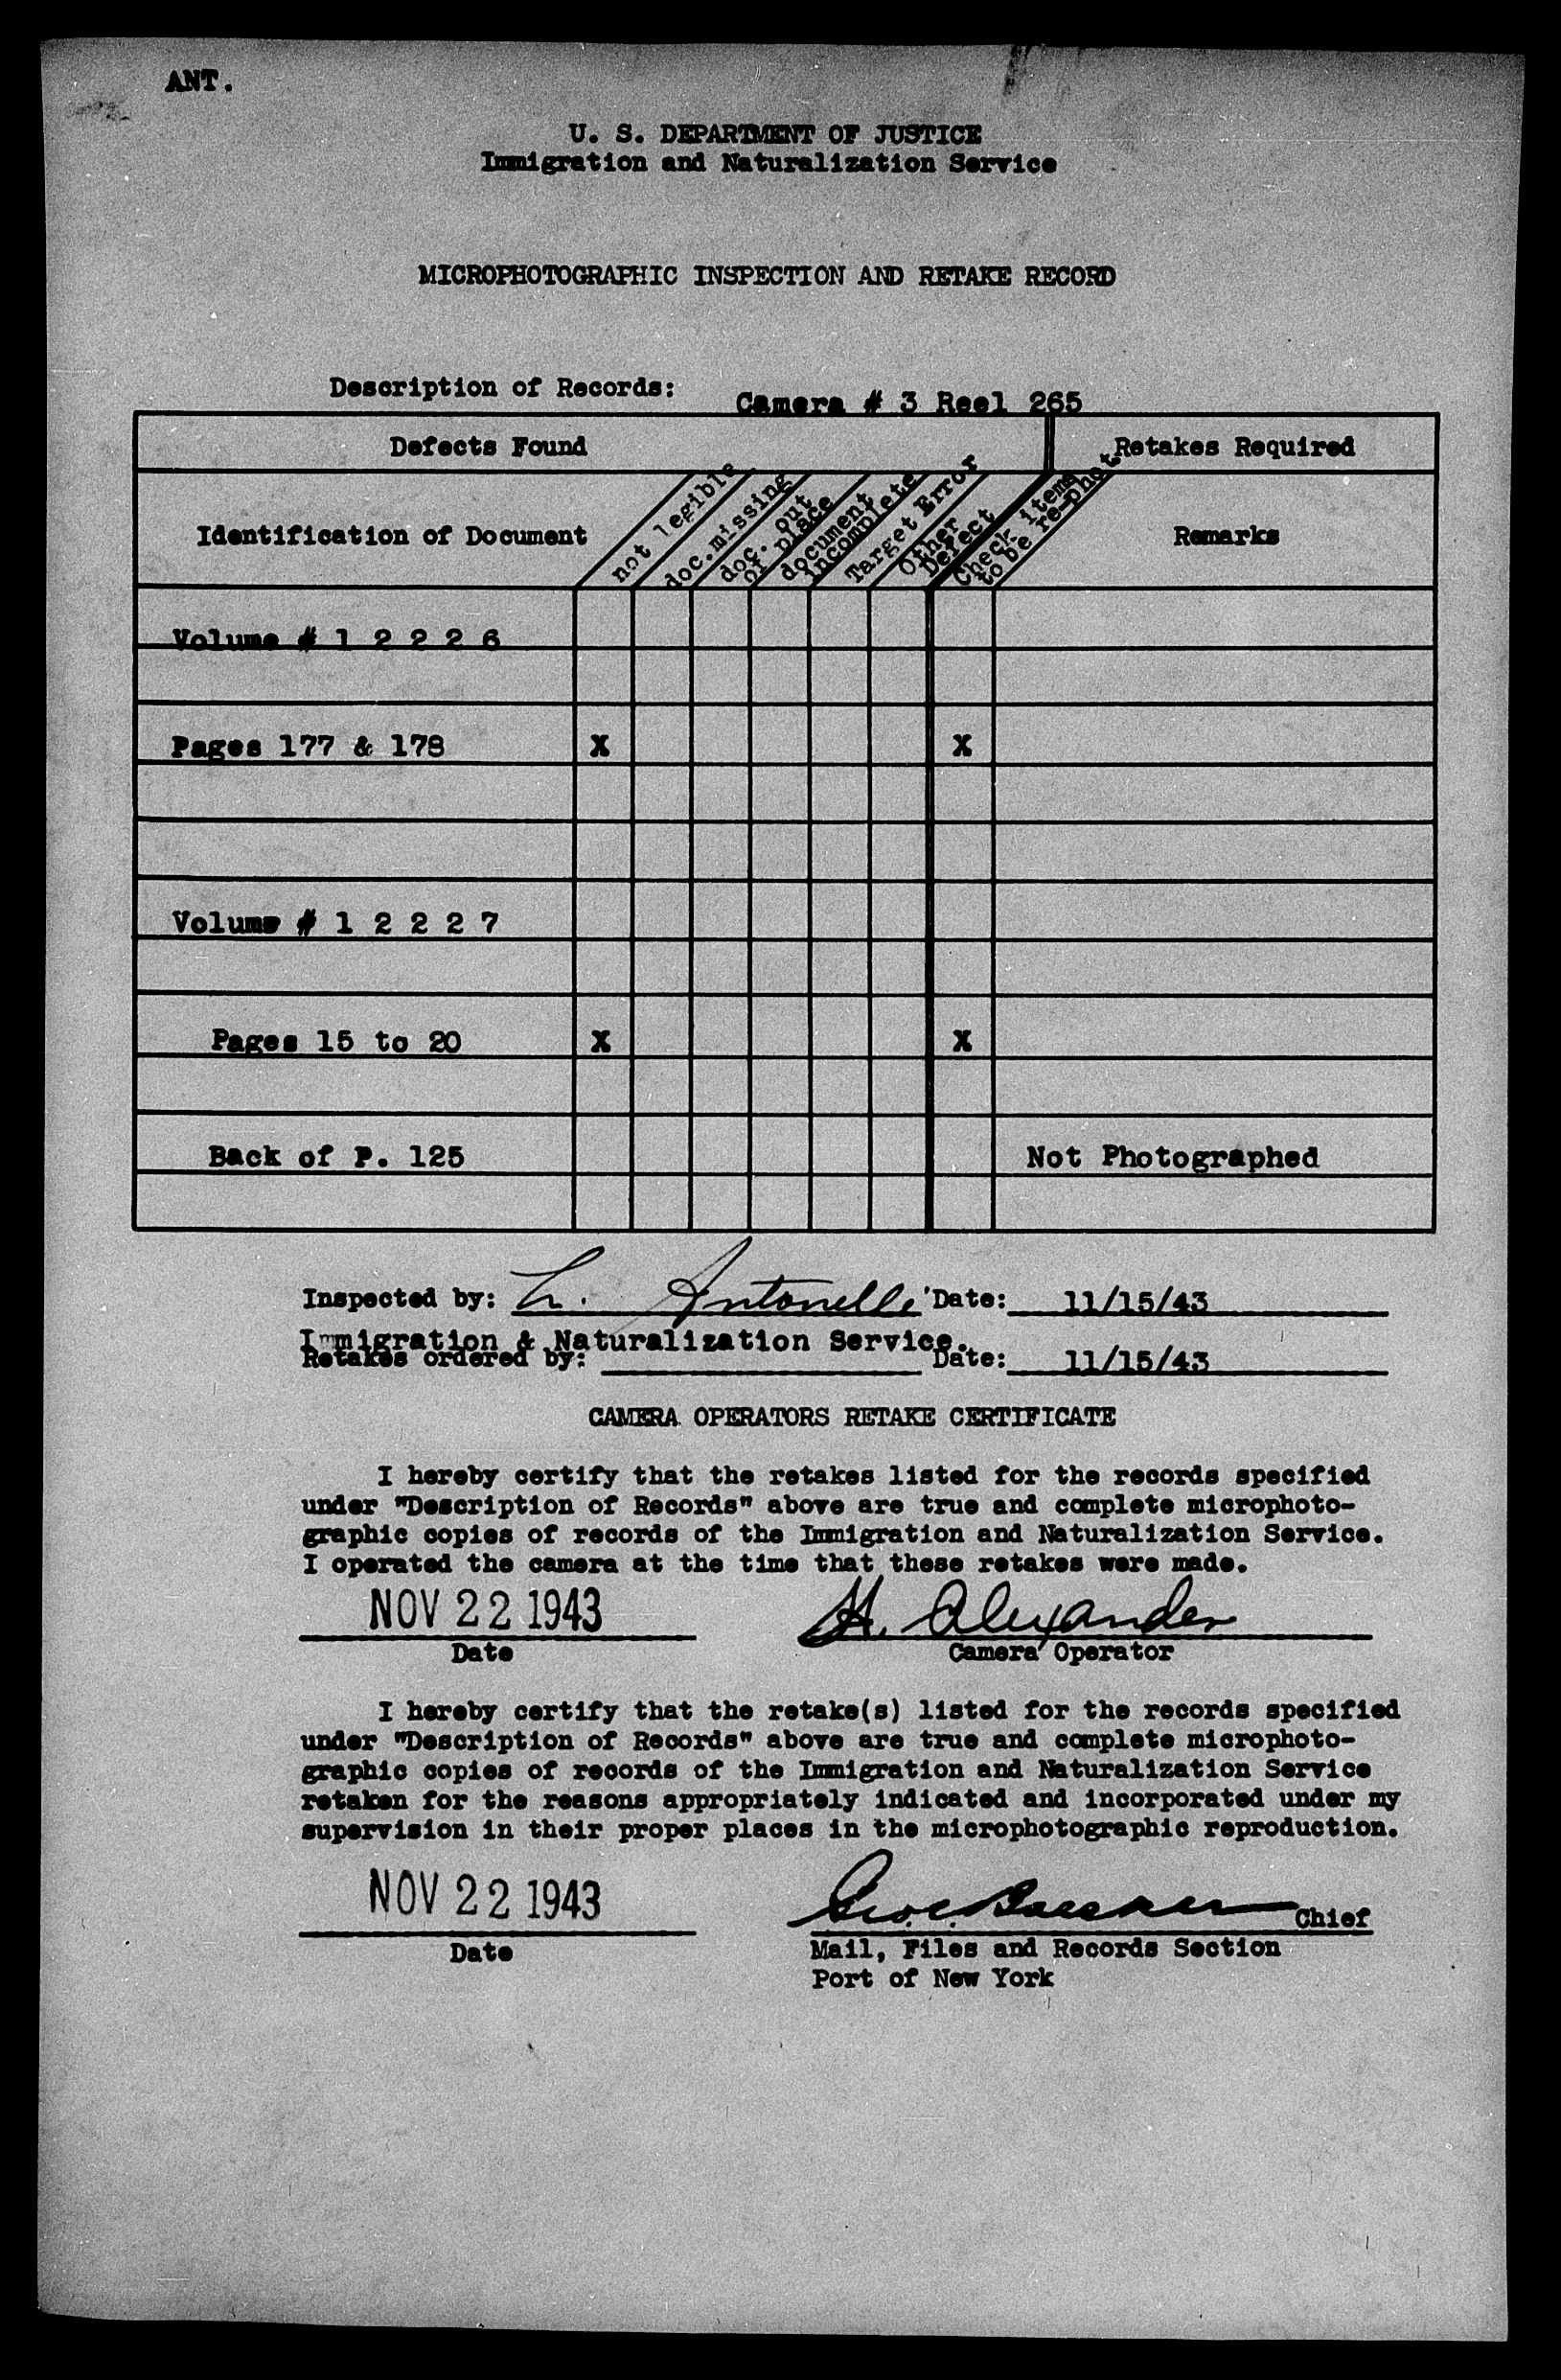 ANT.
U. S. DEPARTMENT OF JUSTICE
Immigration and Naturalization Service
MICROPHOTOGRAPHIC INSPECTION AND RETAKE RECORD
Description of Records: Camera # 3 Reel 265
Defects Found
Retakes Required
Identification of Document
not legible
doc. missing
doc. out
of place
document
incomplete
Target Error
Other
Defect
Check items
to be re-phot.
Remarks
Volume # 1 2 2 2 6
Pages 177 & 178 X X
Volume # 1 2 2 2 7
Pages 15 to 20 X X
Back of P. 125 Not Photographed
Inspected by: L. Antonelli Date: 11/15/43
Immigration & Naturalization Service.
Retakes ordered by: Date: 11/15/43
CAMERA OPERATORS RETAKE CERTIFICATE
I hereby certify that the retakes listed for the records specified
under "Description of Records" above are true and complete microphoto-
graphic copies of records of the Immigration and Naturalization Service.
I operated the camera at the time that these retakes were made.
NOV 22 1943 H. Alexander
Date Camera Operator
I hereby certify that the retake(s) listed for the records specified
under "Description of Records" above are true and complete microphoto-
graphic copies of records of the Immigration and Naturalization Service
retaken for the reasons appropriately indicated and incorporated under my
supervision in their proper places in the microphotographic reproduction.
NOV 22 1943 Chief
Date Mail, Files and Records Section
Port of New York